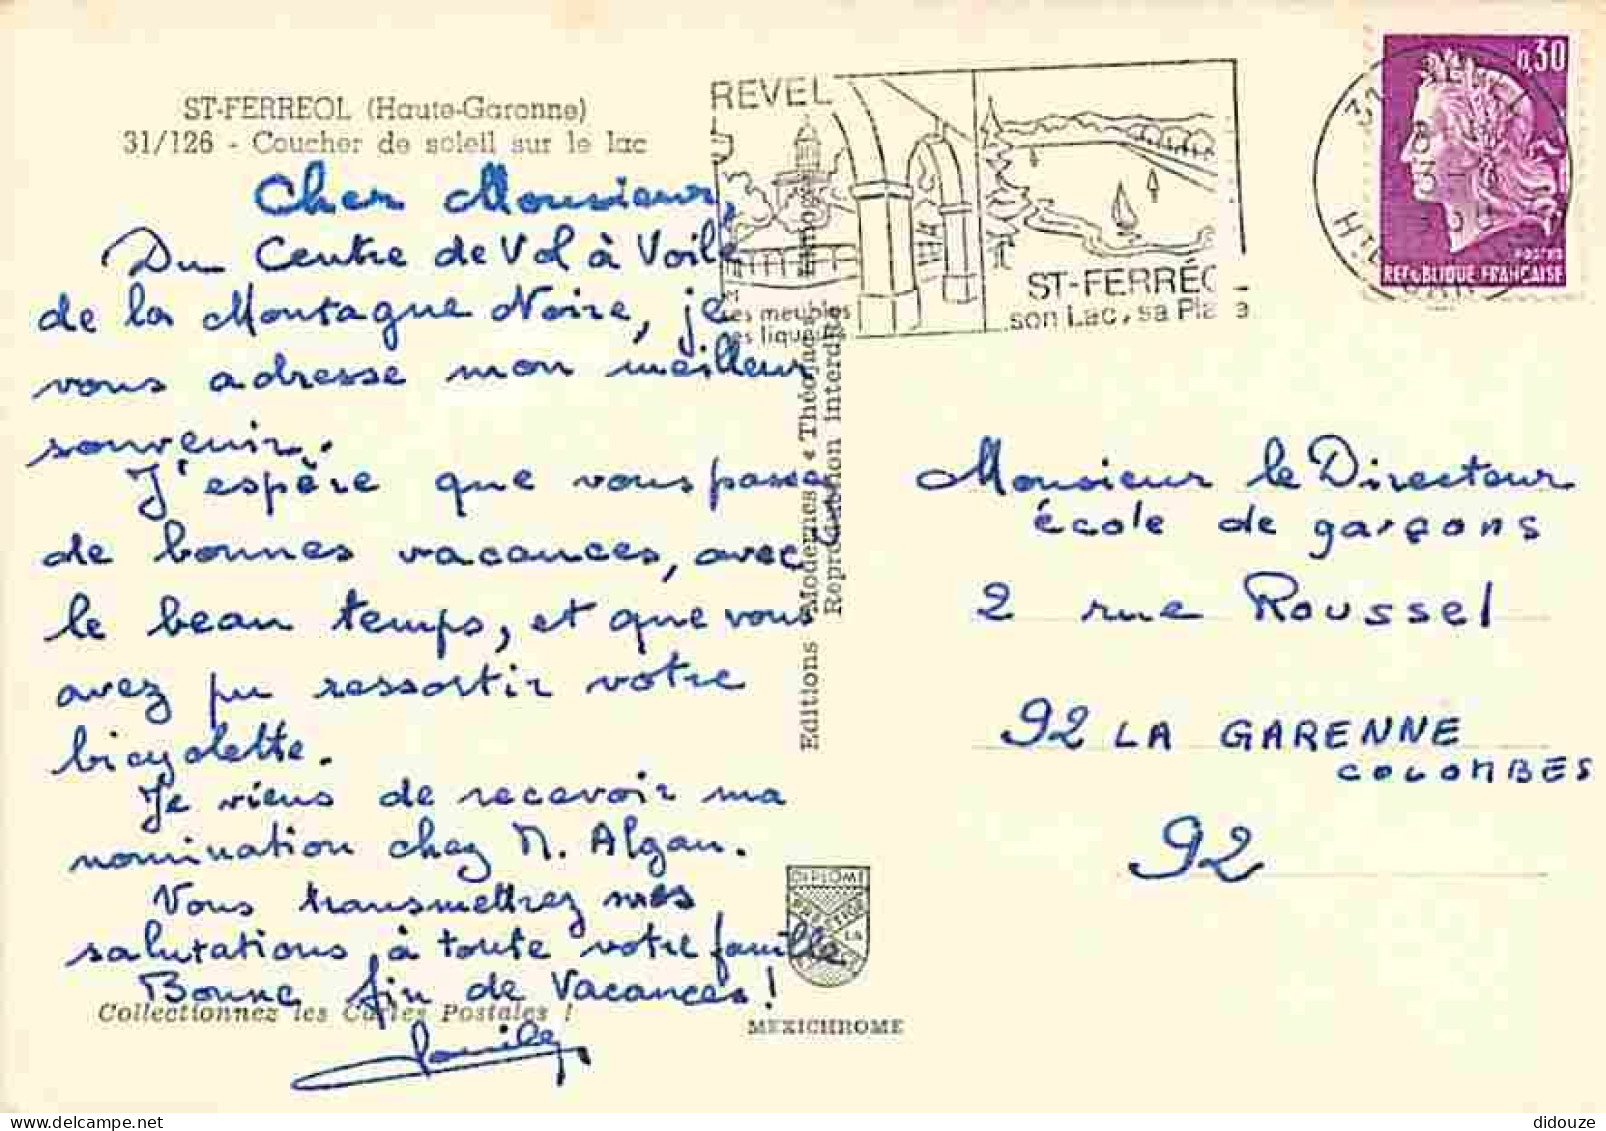 ST-FERREOL (Haute-Garonne)
31/126 - Coucher de soleil sur le lac
Cher Monsieur,
Du Centre de Vol à Voile
de la Montagne Noire, je
vous adresse mon meilleur
souvenir.
J'espère que vous passez
de bonnes vacances, avec
le beau temps, et que vous
avez pu ressortir votre
bicyclette.
Je viens de recevoir ma
nomination chez M. Algan.
Vous transmettrez mes
salutations, à toute votre famille
Bonne fin de Vacances!
Collectionnez les Cartes Postales !
REVEL
ses meubles
ses liqueurs
ST-FERRÉO
son Lac, sa Plage
0,30
POSTES
REPUBLIQUE FRANÇAISE
31 REVEL
Hte GAR
Editions Modernes « Théojac
Limoges
Reproduction interdite
Monsieur le Directeur
école de garçons
2 rue Roussel
92 LA GARENNE
COLOMBES
92
DIPLOME
LA
MEXICHROME
didouze